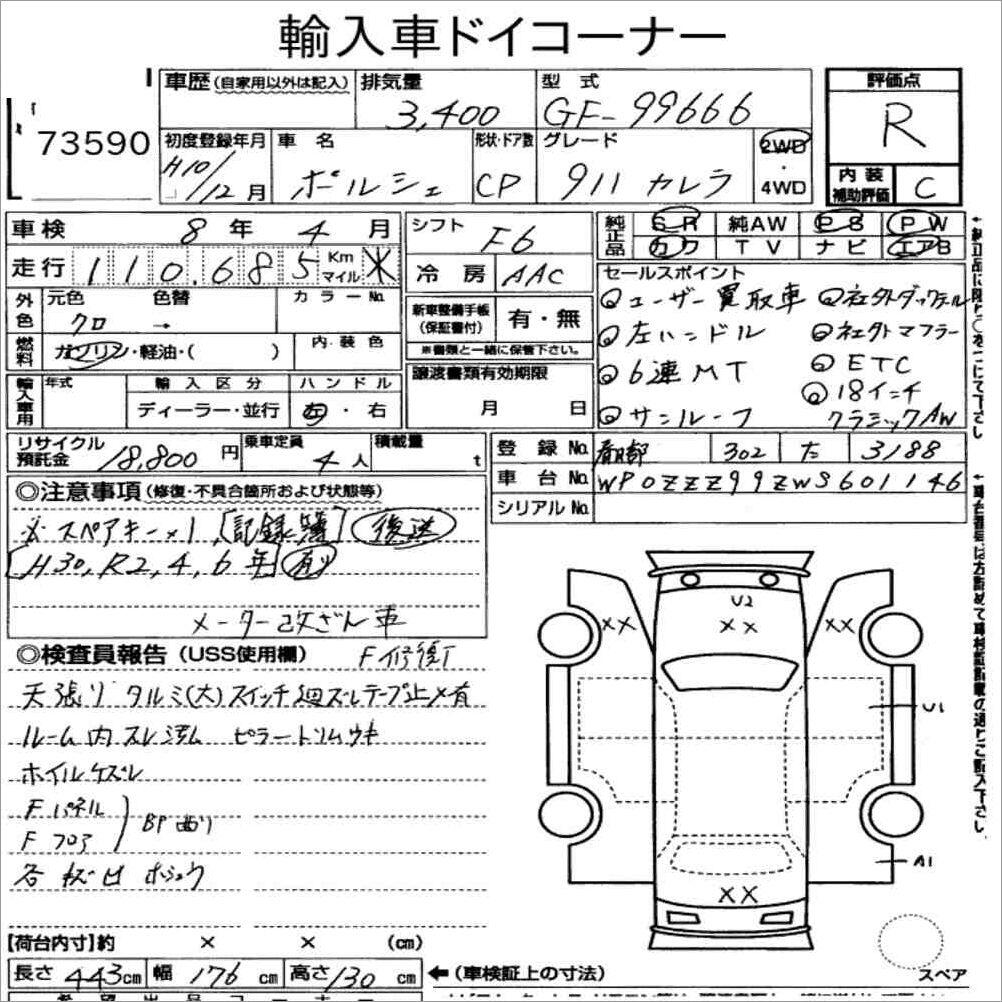 輸入車ドイコーナー
73590
車歴(自家用以外は記入) 排気量 3,400 型式 GF-99666
評価点 R
初度登録年月 H10/12月 車名 ポルシェ 形状・ドア数 CP グレード 911 カレラ 2WD・4WD
内装補助評価 C
車検 8年 4月 シフト F6
純正品 SR 純AW PS PW
カワ TV ナビ エアB
走行 110,685 Km マイル ※ 冷房 AAC
セールスポイント
ユーザー買取車 社外ダックテール
左ハンドル 社外マフラー
6連MT ETC
サンルーフ 18インチ
クラミックAW
外色 元色 クロ 色替 → カラーNo.
新車整備手帳(保証書付) 有・無
※書類と一緒に保管下さい。
燃料 ガソリン・軽油・( ) 内装色
輸入車用 年式 輸入区分 ハンドル
ディーラー・並行 左・右
譲渡書類有効期限
月 日
リサイクル預託金 18,800円 乗車定員 4人 積載量 t
登録No. 302 た 3188
車台No. WP0ZZZ99ZWS601146
シリアルNo.
◎注意事項(修復・不具合箇所および状態等)
※スペアキー×1,[記録簿](後送)
[H30,R2,4,6年](有り)
メーター改ざん車
◎検査員報告(USS使用欄) F修復
天張りタルミ(大)スイッチ廻ズレテープ止メ有
ルーム内スレ済ム ピラートリムウキ
ホイルケズレ
Fパネル
Fフロア
BP曲り
各板凹ホシュウ
U2
XX
XX
XX
U1
A1
XX
スペア
【荷台内寸】約 × × (cm)
長さ 443cm 幅 176cm 高さ 130cm ←(車検証上の寸法)